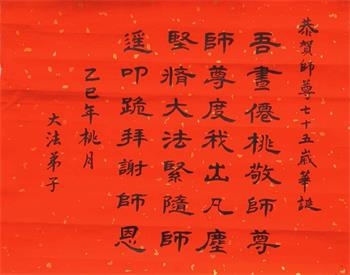 恭賀師尊七十五歲華誕
吾畫僊桃敬師尊
師尊度我出凡塵
堅脩大法緊隨師
遥叩跪拜謝師恩
乙巳年桃月
大法弟子